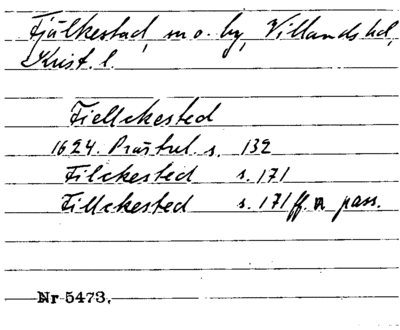 Fjälkestad, sn o. by, Villands hd,
Krist. l.
Fiellckested
1624. Präströl. s. 132
Filckested s. 171
Fillckested s. 171 ff. o pass.
Nr 5473.